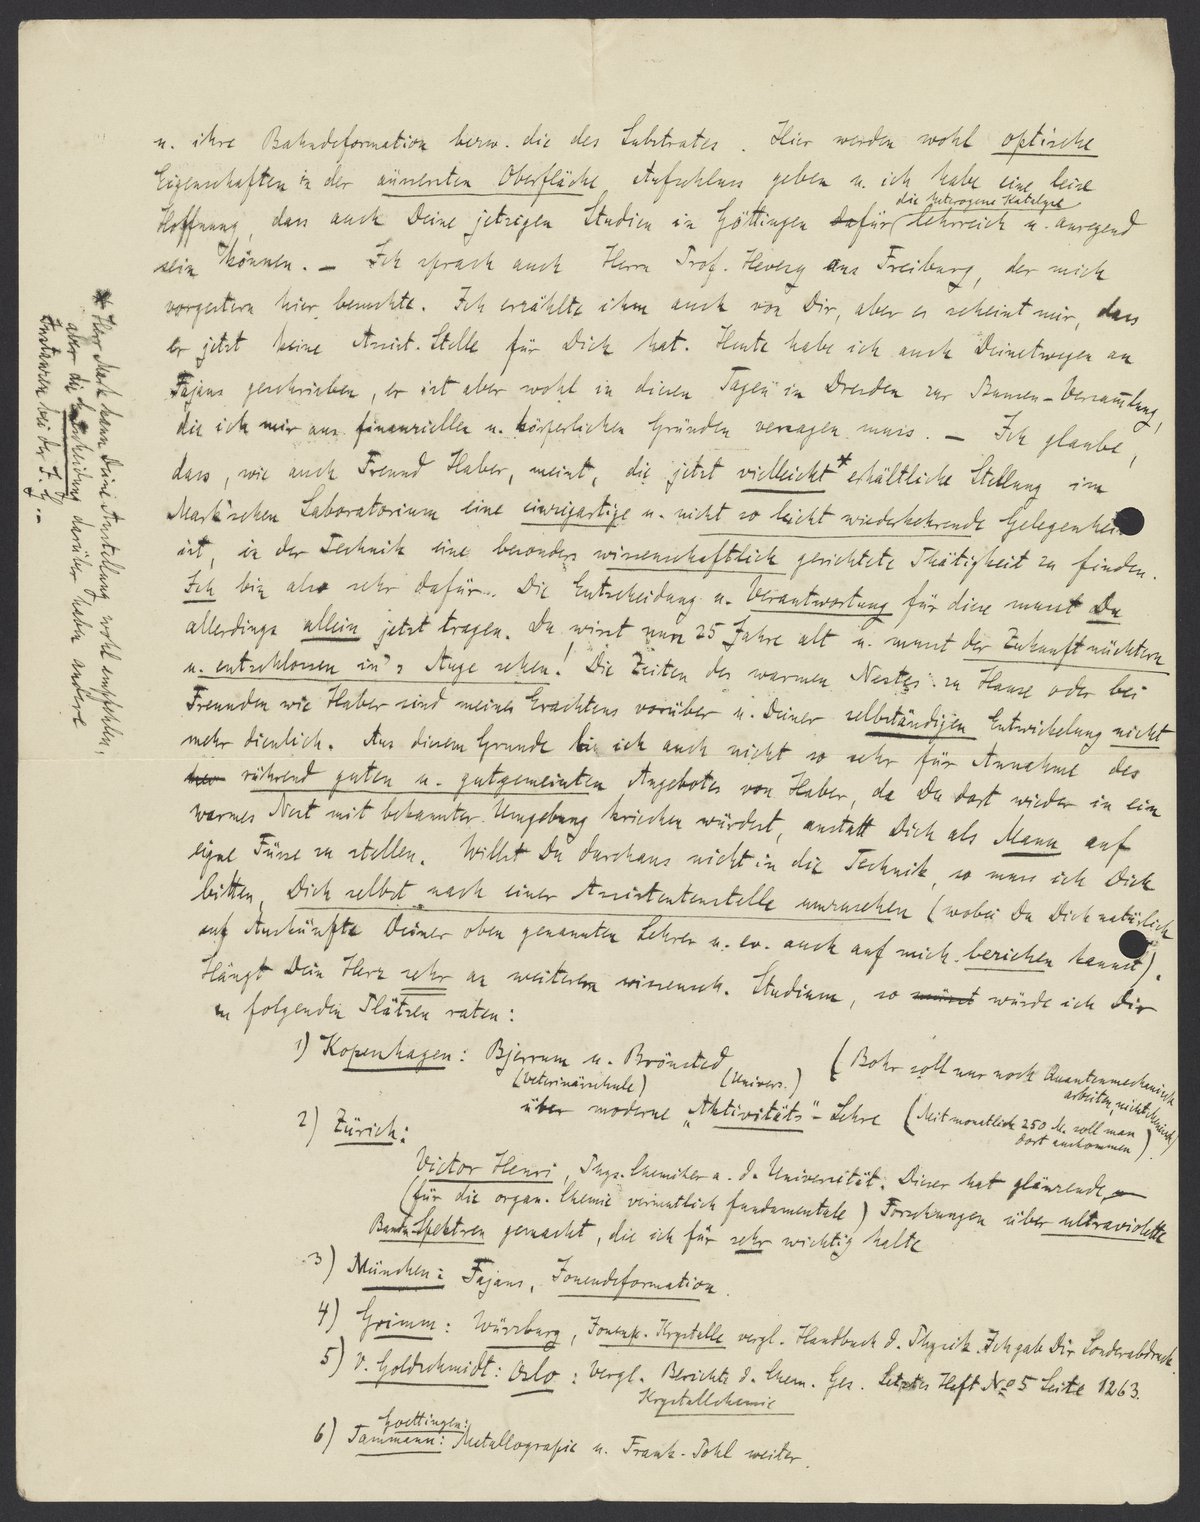 u. ihre Bahndeformation bezw. die des Substrates. Hier werden wohl optische
Eigenschaften in der äusersten Oberfläche Aufschluss geben u. ich habe eine leise
die heterogene Katalyse
Hoffnung, dass auch Deine jetzigen Studien in Göttingen dafür lehrreich u. anregend
sein können. – Ich sprach auch Herrn Prof. Hevesy aus Freiburg, der mich
vorgestern hier besuchte. Ich erzählte ihm auch von Dir, aber es scheint mir, dass
er jetzt keine Assist. Stelle für Dich hat. Heute habe ich auch Deinetwegen an
Fajans geschrieben, er ist aber wohl in diesen Tagen in Dresden zur Bunsen-Versamlung,
die ich mir aus finanziellen u. körperlichen Gründen versagen muss. – Ich glaube,
dass, wie auch Freund Haber, meint, die jetzt vielleicht* erhältliche Stellung im
Mark'schen Laboratorium eine einzigartige u. nicht so leicht wiederkehrende Gelegenheit
ist, in der Technik eine besonders wissenschaftlich gerichtete Thätigkeit zu finden.
Ich bin also sehr dafür. Die Entscheidung u. Verantwortung für diese musst Du
allerdings allein jetzt tragen. Du wirst nun 25 Jahre alt u. musst der Zukunft nüchtern
u. entschlossen in's Auge sehen! Die Zeiten des warmen Nestes zu Hause oder bei
Freunden wie Haber sind meines Erachtens vorüber u. Deiner selbständigen Entwickelung nicht
mehr dienlich. Aus diesem Grunde bin ich auch nicht so sehr für Annahme des
rührend guten u. gutgemeinten Angebotes von Haber, da Du dort wieder in ein
warmes Nest mit bekannter Umgebung kriechen würdest, anstatt Dich als Mann auf
eigne Füsse zu stellen. Willst Du durchaus nicht in die Technik, so muss ich Dich
bitten, Dich selbst nach einer Assistentenstelle umzusehen (wobei Du Dich natürlich
auf Auskünfte Deiner oben genannten Lehrer u. ev. auch auf mich beziehen kannst).
Hängt Dein Herz sehr an weiterem wissensch. Studium, so müsst würde ich Dir
zu folgenden Plätzen raten:
1) Kopenhagen: Bjerrum u. Brönsted (Bohr soll nur noch Quantenmechanisch
(Veterinärschule) (Univers.) arbeiten, nicht chemisch)
über moderne "Aktivitäts"-Lehre (Mit monatlich 250 M. soll man
dort auskommen)
2) Zürich:
Victor Henri, Phys. Chemiker a. d. Universität. Dieser hat glänzende,
(für die organ. Chemie vermutlich fundamentale) Forschungen über ultraviolette
Banden-Spektren gemacht, die ich für sehr wichtig halte
3) München: Fajans, Ionendeformation.
4) Grimm: Würzburg, Krystalle vergl. Handbuch d. Physik. Ich gab Dir Sonderabdruck
5) V. Goldschmidt: Oslo: Vergl. Berichte d. Chem. Ges. Letztes Heft No 5 Seite 1263.
Krystallchemie
Goettingen:
6) Tammann: Metallografie u. Frank-Pohl weiter.
* Herr Mark kann Deine Anstellung wohl empfehlen,
aber die Entscheidung darüber haben andere
Instanzen bei der I. G. ..